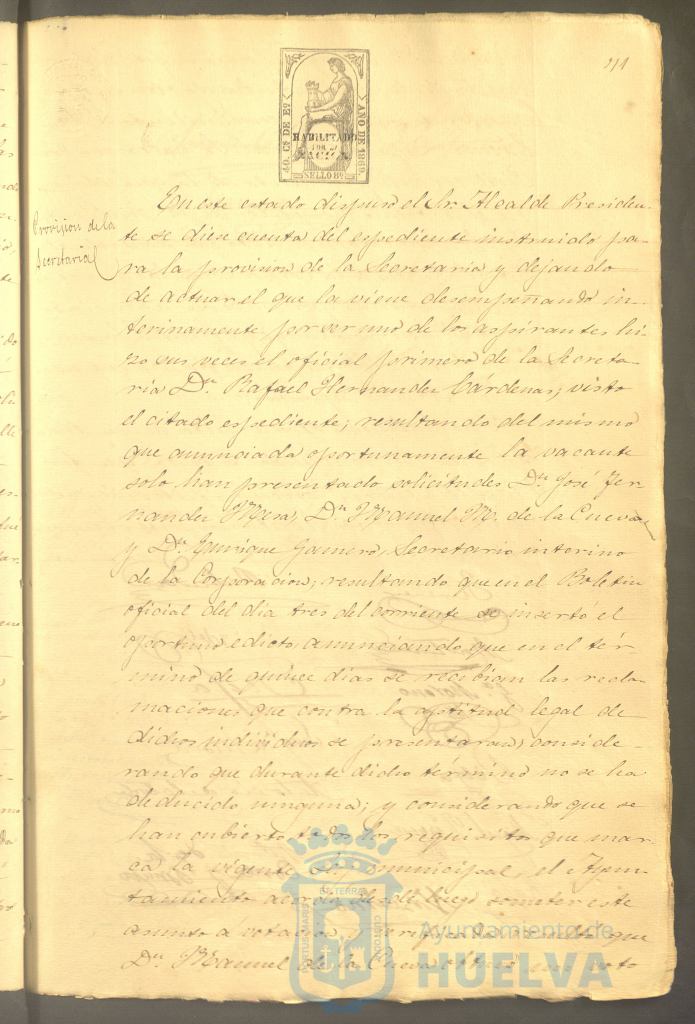 211
40. Cs DE Eo
AÑO DE 1869.
HABILITADO
POR LA
NACION
SELLO 8o
Provision de la
Secretaria
En este estado dispuso el Sr. Alcalde Presiden-
te se diese cuenta del espediente instruido pa-
ra la provision de la Secretaria y dejando
de actuar el que la viene desempeñando in-
terinamente por ser uno de los aspirantes hi-
zo sus veces el oficial primero de la Secreta-
ría Dn. Rafael Hernandez Cárdenas; visto
el citado espediente; resultando del mismo
que anunciada oportunamente la vacante
solo han presentado solicitudes Dn. José Fer-
nandez Mesa, Dn. Manuel M. de la Cueva
y Dn. Enrique Gamero, Secretario interino
de la Corporacion; resultando que en el Boletin
oficial del dia tres del corriente se insertó el
oportuno edicto anunciando que en el tér-
mino de quince dias se recibian las recla-
maciones que contra la aptitud legal de
dichos individuos se presentaran; conside-
rando que durante dicho término no se ha
deducido ninguna; y considerando que se
han cubierto todos los requisitos que mar-
ca la vigente ley municipal, el Ayun-
tamiento acordó desde luego someter este
asunto á votacion, y verificada resultó que
Dn. Manuel de la Cueva obtuvo un voto
PORTUS MARIS
ET TERRAE
CUSTODIA
Ayuntamiento de
HUELVA